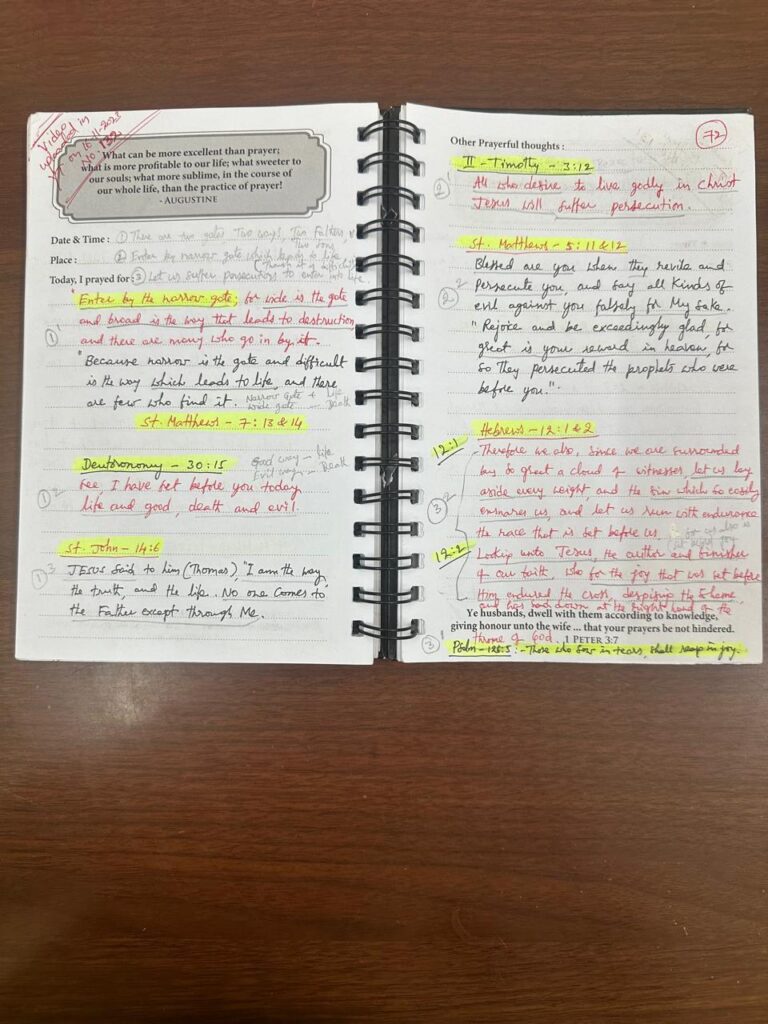 Video
uploaded in
on 16-11-2023
No: 132
"What can be more excellent than prayer;
what is more profitable to our life; what sweeter to
our souls; what more sublime, in the course of
our whole life, than the practice of prayer!
- AUGUSTINE
Date & Time : ① There are two gates Two ways!, Two
Place : ② Enter by narrow gate which leading to life
Today, I prayed for : ③ Let us suffer persecutors to enter into life
"Enter by the narrow gate; for wide is the gate
①1 and broad is the way that leads to destruction
and there are many who go in by it.
"Because narrow is the gate and difficult
is the way which leads to life, and there
are few who find it. Narrow gate → Life
Wide gate — Death
St. Matthews - 7: 13 & 14
Deutoronomy - 30:15 Good way - life
Evil way - Death
①2 See, I have set before you today
life and good, death and evil.
St. John - 14:6
①3 JESUS said to him (Thomas), "I am the way,
the truth, and the life. No one comes to
the Father except through Me.
Other Prayerful thoughts : 72
II - Timothy - 3:12
②1 All who desire to live godly in Christ
Jesus will suffer persecution.
St. Matthews - 5: 11 & 12
Blessed are you when they revile and
②2 Persecute you, and say all kinds of
evil against you falsely for My sake.
"Rejoice and be exceedingly glad, for
great is your reward in heaven, for
so they persecuted the prophets who were
before you."
Hebrews - 12: 1 & 2
12:1 Therefore we also, since we are surrounded
by so great a cloud of witnesses, let us lay
③2 aside every weight, and the sin which so easily
ensnares us, and let us run with endurance
the race that is set before us,
12:2 Looking unto Jesus, the author and finisher
of our faith, who for the joy that was set before
Him endured the cross, despising the shame,
and has sat down at the right hand of the
Ye husbands, dwell with them according to knowledge,
giving honour unto the wife ... that your prayers be not hindered.
throne of God. 1 PETER 3:7
③1 Psalm - 126:5 :- Those who sow in tears, shall reap in joy.